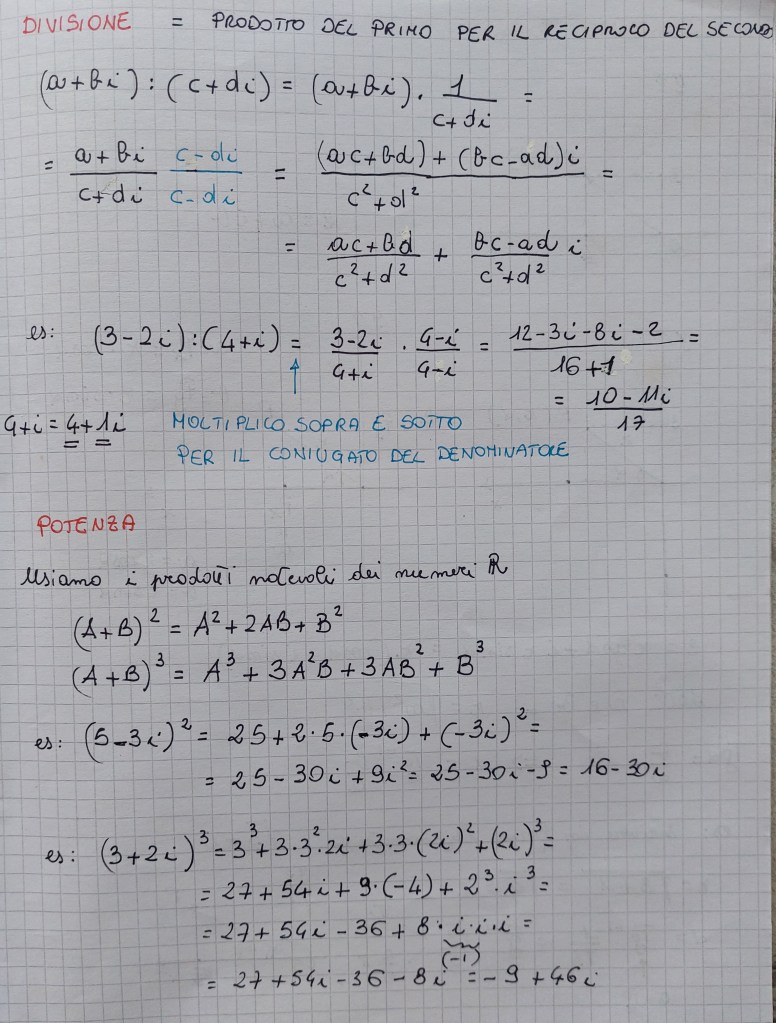 DIVISIONE = PRODOTTO DEL PRIMO PER IL RECIPROCO DEL SECONDO
(a+bi):(c+di) = (a+bi)· 1/(c+di) =
= (a+bi)/(c+di) (c-di)/(c-di) = ((ac+bd)+(bc-ad)i)/(c²+d²) =
= (ac+bd)/(c²+d²) + (bc-ad)/(c²+d²) i
es: (3-2i):(4+i) = (3-2i)/(4+i) · (4-i)/(4-i) = (12-3i-8i-2)/(16+1) =
= (10-11i)/17
4+i = 4+1i MOLTIPLICO SOPRA E SOTTO
PER IL CONIUGATO DEL DENOMINATORE
POTENZA
Usiamo i prodotti notevoli dei numeri ℝ
(A+B)² = A²+2AB+B²
(A+B)³ = A³+3A²B+3AB²+B³
es: (5-3i)² = 25+2·5·(-3i)+(-3i)² =
= 25-30i+9i² = 25-30i-9 = 16-30i
es: (3+2i)³ = 3³+3·3²·2i+3·3·(2i)²+(2i)³ =
= 27+54i+9·(-4)+2³·i³ =
= 27+54i-36+8·i·i·i =
(-1)
= 27+54i-36-8i = -9+46i